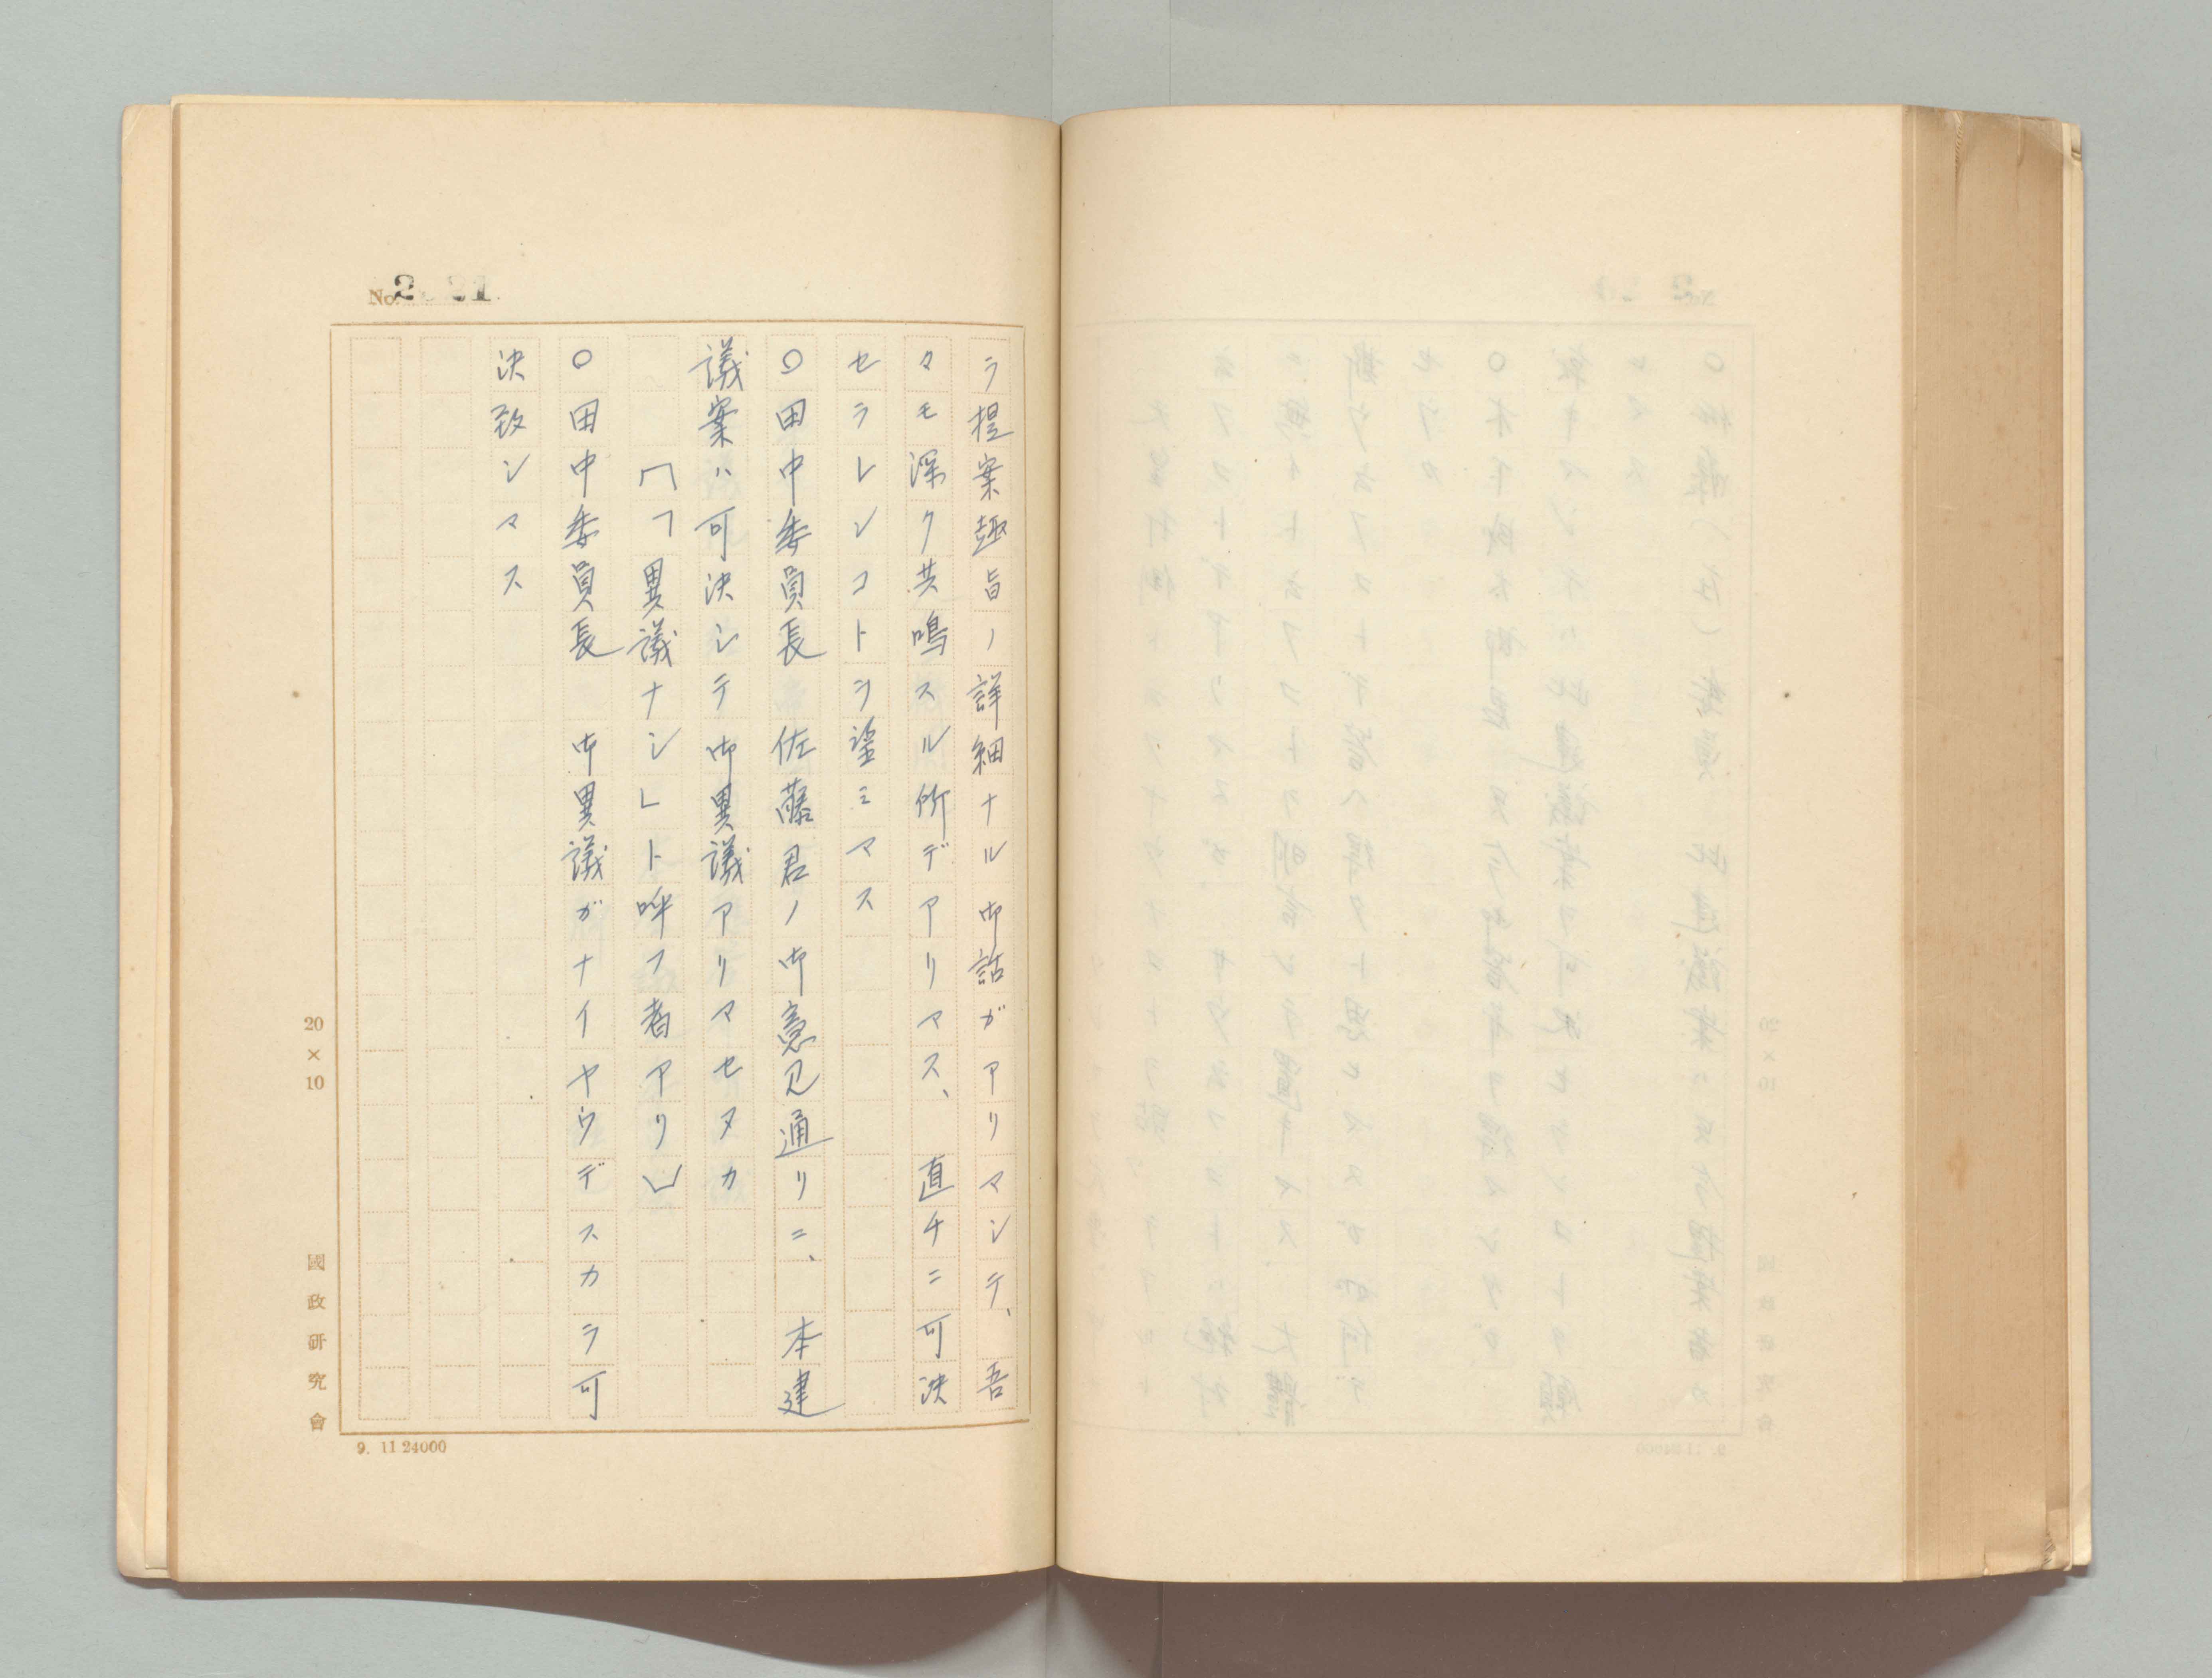 No. 2 21
ラ提案趣旨ノ詳細ナル御話ガアリマシテ、吾
々モ深ク共鳴スル所デアリマス、直チニ可決
セラレンコトヲ望ミマス
○田中委員長 佐藤君ノ御意見通リニ、本建
議案ハ可決シテ御異議アリマセヌカ
〔「異議ナシ」ト呼フ者アリ〕
○田中委員長 御異議ガナイヤウデスカラ可
決致シマス
20×10
國政研究會
9. 11 24000